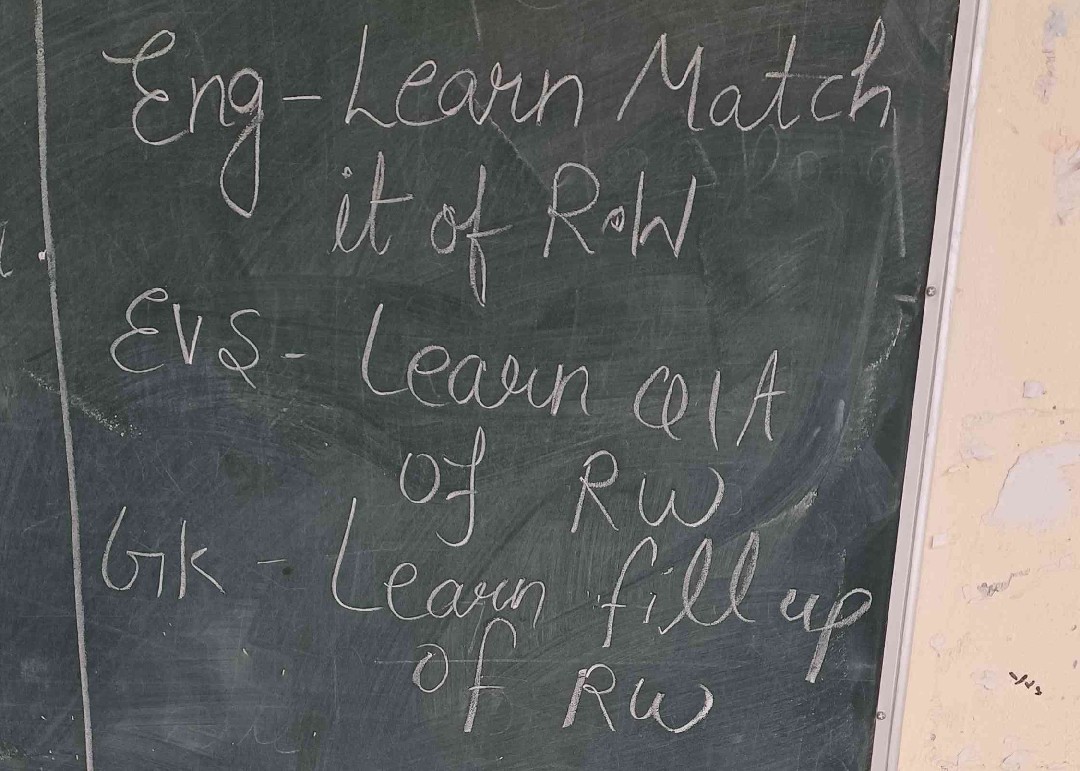 Eng - Learn Match
it of R.W
EVS - Learn Q/A
of RW
GK - Learn fill up
of RW